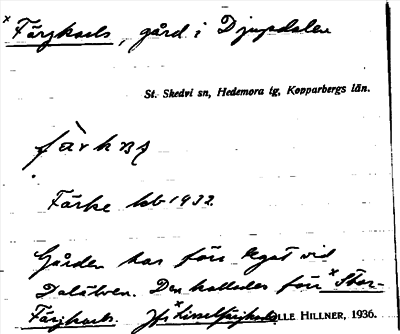 × Färjkarls, gård i Djupdalen
St. Skedvi sn, Hedemora tg, Kopparbergs län.
Färke lb 1932
Gården har förr legat vid
Dalälven. Den kallades förr × Stor-
Färjkarls. Jfr × Lisselfärjkarls OLLE HILLNER, 1936.